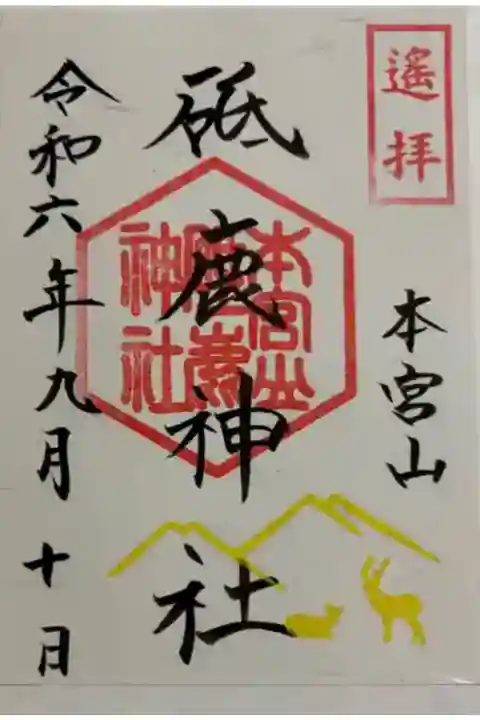 遙拝
本宮山
砥鹿神社
本宮山
神社
令和六年九月十日